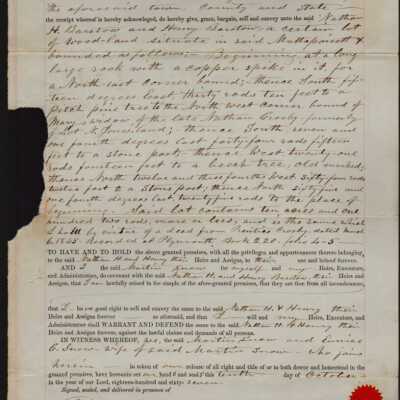 the aforesaid town, County and State
the receipt whereof is hereby acknowledged, do hereby give, grant, bargain, sell and convey unto the said Nathan
H. Barstow and Henry Barstow, a certain lot
of Woodland situate in said Mattapoisett &
bounded as follows. Beginning at a large
large rock with a copper spike in it for
a North east corner bound; thence South fif-
teen degrees East thirty rods ten feet to a
pitch pine tree to the North West corner bound of
Mary land of the late Nathan Crosby formerly
of Land; thence South seven and
one fourth degrees East forty four rods fifteen
feet to a stone post thence West twenty one
rods fourteen feet to a beech tree, old marked,
thence North twelve and three fourths West sixty four rods
twelve feet to a Stone post; thence North sixty five and
one fourth degrees East twenty five rods to the place of
beginning. Said Lot contains ten acres and one
hundred two rods, more or less, and is the same which
I hold by virtue of a deed from Prentiss Crosby, dated
6, 1855. Recorded at Plymouth, Book 220. folio 45
TO HAVE AND TO HOLD the above granted premises, with all the privileges and appurtenances thereto belonging,
to the said Nathan H and Henry their Heirs and Assigns, to their use and behoof forever.
AND I the said Martin Snow for myself and my Heirs, Executors,
and Administrators, do covenant with the said Nathan H. and Henry Barstow their Heirs
and Assigns, that I am lawfully seized in fee simple of the afore-granted premises, that they are free from all incumbrances,
that I have good right to sell and convey the same to the said Nathan H. & Henry their
Heirs and Assigns forever as aforesaid, and that I will and my Heirs, Executors, and
Administrators shall WARRANT AND DEFEND the same to the said Nathan H & Henry their
Heirs and Assigns forever, against the lawful claims and demands of all persons.
IN WITNESS WHEREOF, we, the said Martin Snow and
C. Snow wife of said Martin Snow who joins
herein in token of our release of all right and title of or to both dower and homestead in the
granted premises, have hereunto set our hand & and seal & this tenth day of October
in the year of our Lord, eighteen-hundred and sixty seven.
Signed, sealed, and delivered in presence of